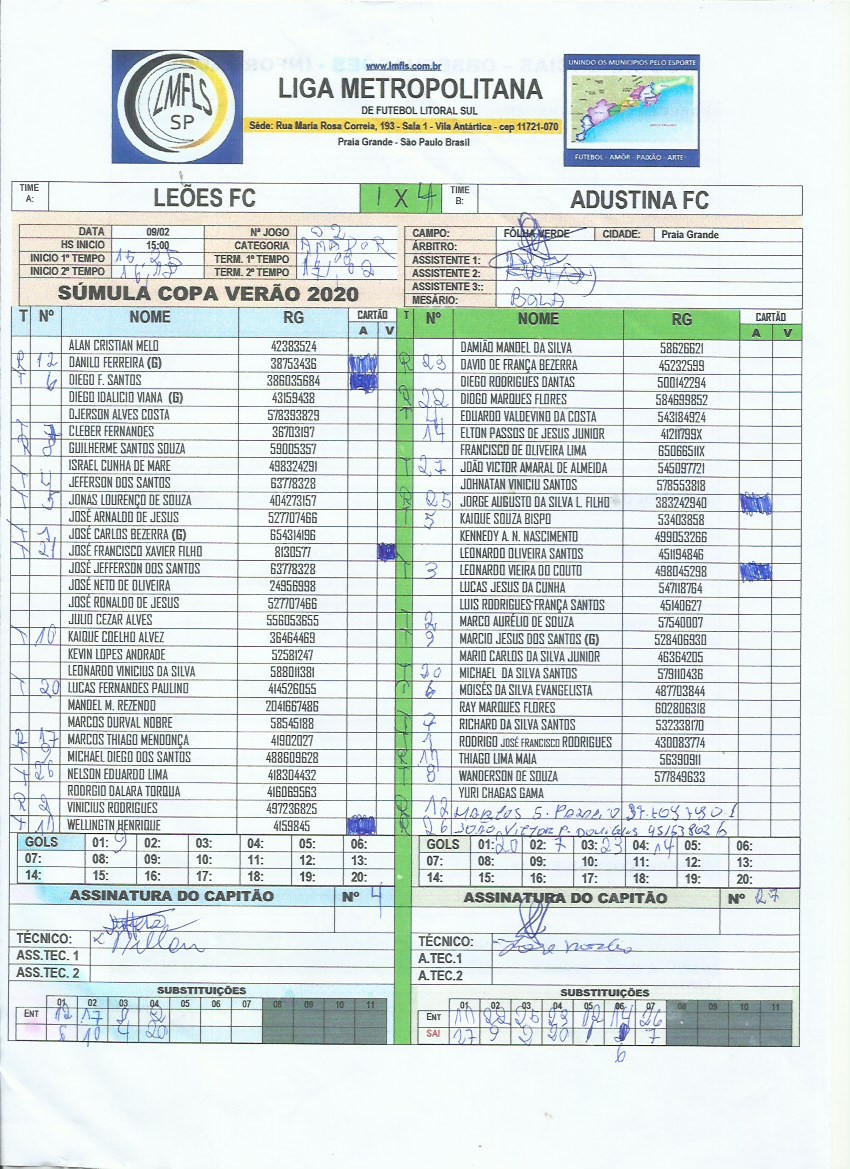 LMFLS
SP
www.lmfls.com.br
LIGA METROPOLITANA
DE FUTEBOL LITORAL SUL
Séde: Rua Maria Rosa Correia, 193 - Sala 1 - Vila Antártica - cep 11721-070
Praia Grande - São Paulo Brasil
UNINDO OS MUNICIPIOS PELO ESPORTE
FUTEBOL - AMÔR - PAIXÃO - ARTE-
TIME A: LEÕES FC 1 X 4 TIME B: ADUSTINA FC
DATA 09/02 Nª JOGO 02
HS INICIO 15:00 CATEGORIA AMADOR
INICIO 1º TEMPO 15,25 TERM. 1º TEMPO
INICIO 2º TEMPO TERM. 2º TEMPO
SÚMULA COPA VERÃO 2020
CAMPO: FÔLHA VERDE CIDADE: Praia Grande
ÁRBITRO:
ASSISTENTE 1:
ASSISTENTE 2:
ASSISTENTE 3::
MESÁRIO: BOLA
T Nº NOME RG CARTÃO A V
ALAN CRISTIAN MELO 42383524
R 12 DANILO FERREIRA (G) 38753436
T 6 DIEGO F. SANTOS 386035684
DIEGO IDALICIO VIANA (G) 43159438
DJERSON ALVES COSTA 578393829
T 7 CLEBER FERNANDES 36703197
R 8 GUILHERME SANTOS SOUZA 59005357
ISRAEL CUNHA DE MARE 498324291
T 4 JEFERSON DOS SANTOS 63778328
T 5 JONAS LOURENÇO DE SOUZA 404273157
JOSÉ ARNALDO DE JESUS 527707466
T 1 JOSÉ CARLOS BEZERRA (G) 654314196
T 21 JOSÉ FRANCISCO XAVIER FILHO 8130577
JOSÉ JEFFERSON DOS SANTOS 63778328
JOSÉ NETO DE OLIVEIRA 24956998
JOSÉ RONALDO DE JESUS 527707466
JULIO CEZAR ALVES 556053655
T 10 KAIQUE COELHO ALVEZ 36464469
KEVIN LOPES ANDRADE 52581247
LEONARDO VINICIUS DA SILVA 588011381
T 20 LUCAS FERNANDES PAULINO 414526055
MANOEL M. REZENDO 2041667486
MARCOS DURVAL NOBRE 58545188
R 17 MARCOS THIAGO MENDONÇA 41902027
T 9 MICHAEL DIEGO DOS SANTOS 488609628
T 26 NELSON EDUARDO LIMA 418304432
RODRGIO DALARA TORQUA 416069563
R 2 VINICIUS RODRIGUES 497236825
T 11 WELLINGTN HENRIQUE 4159845
T Nº NOME RG CARTÃO A V
DAMIÃO MANOEL DA SILVA 58626621
R 23 DAVID DE FRANÇA BEZERRA 45232599
DIEGO RODRIGUES DANTAS 500142294
R 22 DIOGO MARQUES FLORES 584699852
T EDUARDO VALDEVINO DA COSTA 543184924
14 ELTON PASSOS DE JESUS JUNIOR 41211799X
FRANCISCO DE OLIVEIRA LIMA 65066511X
T 27 JOÃO VICTOR AMARAL DE ALMEIDA 545097721
JOHNATAN VINICIU SANTOS 578553818
R 25 JORGE AUGUSTO DA SILVA L. FILHO 383242940
T 5 KAIQUE SOUZA BISPO 53403858
KENNEDY A. N. NASCIMENTO 499053266
LEONARDO OLIVEIRA SANTOS 451194846
T 3 LEONARDO VIEIRA DO COUTO 498045298
LUCAS JESUS DA CUNHA 547118764
LUIS RODRIGUES FRANÇA SANTOS 45140627
T 2 MARCO AURÉLIO DE SOUZA 57540007
T 9 MARCIO JESUS DOS SANTOS (G) 528406930
MARIO CARLOS DA SILVA JUNIOR 46364205
T 20 MICHAEL DA SILVA SANTOS 579110436
6 MOISÉS DA SILVA EVANGELISTA 487703844
RAY MARQUES FLORES 602806318
T 7 RICHARD DA SILVA SANTOS 532338170
T 1 RODRIGO JOSÉ FRANCISCO RODRIGUES 430083774
R 11 THIAGO LIMA MAIA 56390911
T 8 WANDERSON DE SOUZA 577849633
YURI CHAGAS GAMA
12 MARCOS S.
R 26 JOÃO VICTOR P.
GOLS 01: 9 02: 03: 04: 05: 06:
07: 08: 09: 10: 11: 12: 13:
14: 15: 16: 17: 18: 19: 20:
GOLS 01: 20 02: 7 03: 23 04: 14 05: 06:
07: 08: 09: 10: 11: 12: 13:
14: 15: 16: 17: 18: 19: 20:
ASSINATURA DO CAPITÃO Nº 4
TÉCNICO:
ASS.TEC. 1
ASS.TEC. 2
ASSINATURA DO CAPITÃO Nº 27
TÉCNICO:
A.TEC.1
A.TEC.2
SUBSTITUIÇÕES
01 02 03 04 05 06 07 08 09 10 11
ENT 12 17 8 2
8 10 4 20
SUBSTITUIÇÕES
01 02 03 04 05 06 07 08 09 10 11
ENT 11 22 25 23 12 14 26
SAI 27 9 2 20 1 7
6